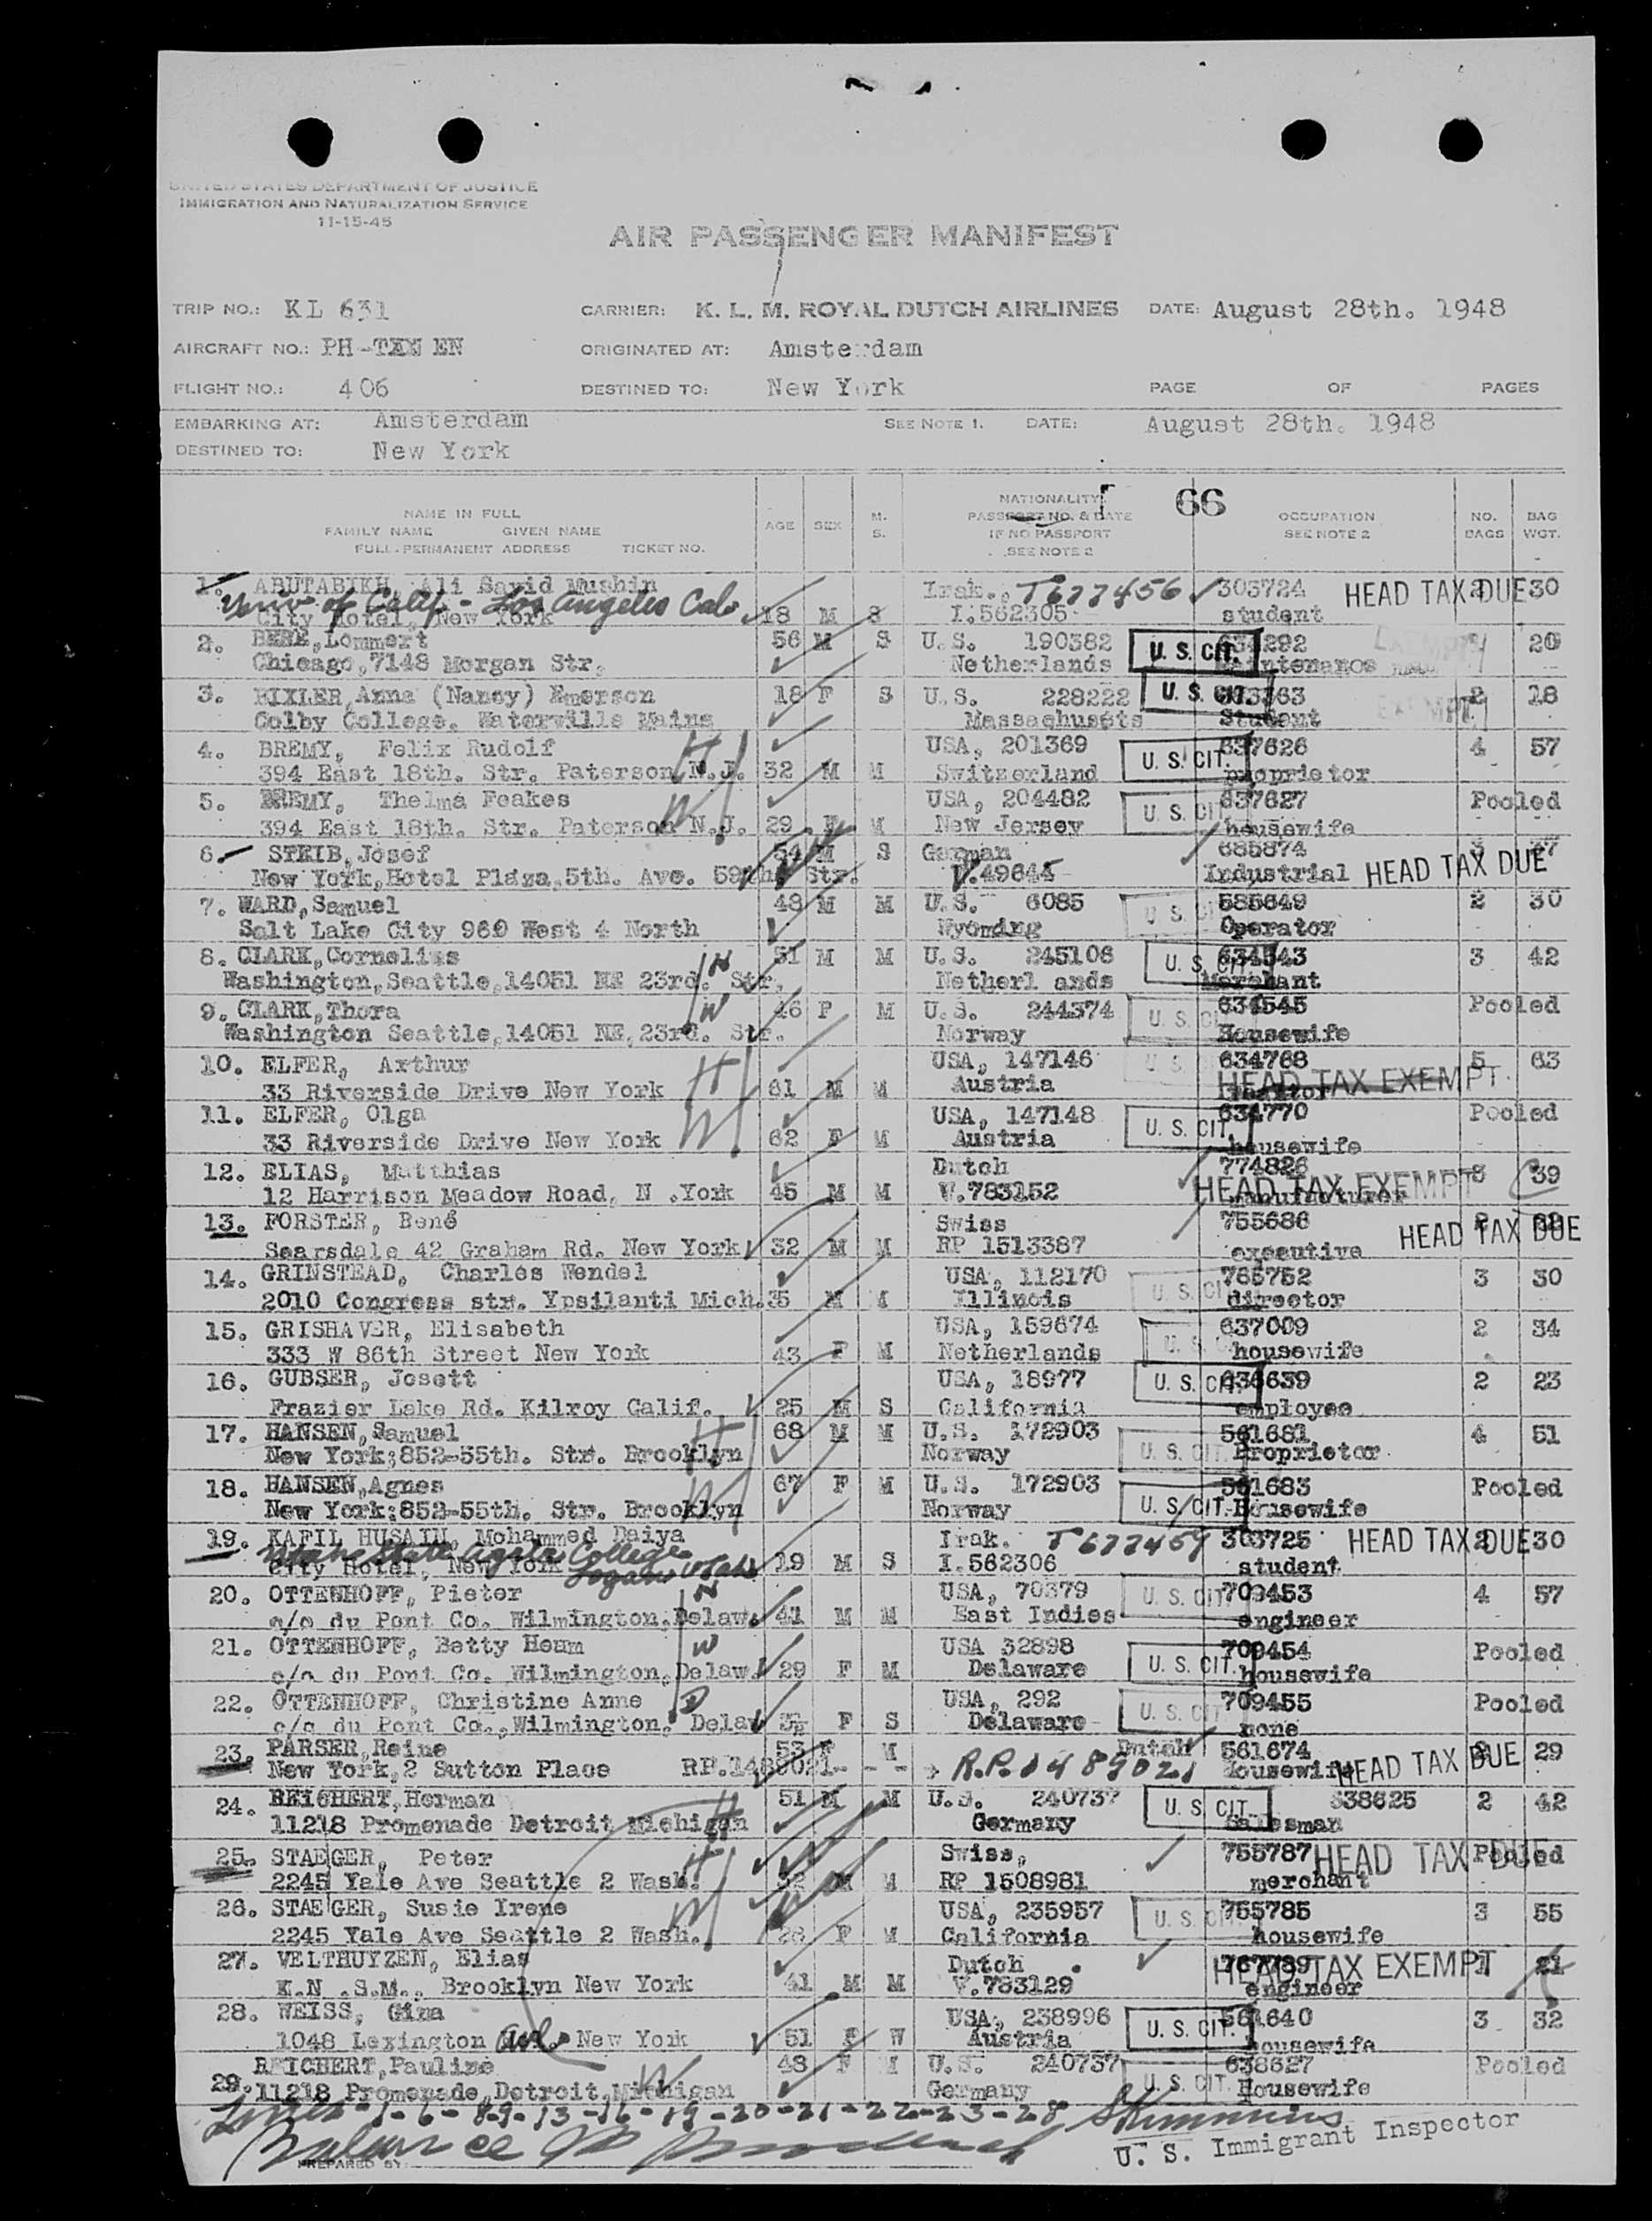 UNITED STATES DEPARTMENT OF JUSTICE
IMMIGRATION AND NATURALIZATION SERVICE
11-15-45
AIR PASSENGER MANIFEST
TRIP NO.: KL 631 CARRIER: K. L. M. ROYAL DUTCH AIRLINES DATE: August 28th. 1948
AIRCRAFT NO.: PH-TXX EN ORIGINATED AT: Amsterdam
FLIGHT NO.: 406 DESTINED TO: New York PAGE OF PAGES
EMBARKING AT: Amsterdam SEE NOTE 1. DATE: August 28th. 1948
DESTINED TO: New York
NAME IN FULL
FAMILY NAME GIVEN NAME
FULL PERMANENT ADDRESS TICKET NO.
AGE SEX M. S.
NATIONALITY
PASSPORT NO. & DATE
IF NO PASSPORT
SEE NOTE 2
66
OCCUPATION
SEE NOTE 2
NO. BAGS
BAG WGT.
1. ABUTABIKH, Ali Sayid Mushin Irak. T677456 303724 HEAD TAX DUE 2 30
Univ of Calif - Los Angeles Cal.
City Hotel, New York 18 M S I.562305 student
2. BERE, Lommert 56 M S U.S. 190382 U. S. CIT. 20
Chicago, 7148 Morgan Str. Netherlands
3. BIXLER, Anna (Nancy) Emerson 18 F S U.S. 228222 U. S. 2 18
Colby College. Waterville Maine Massachusets Student
4. BREMY, Felix Rudolf USA, 201369 U. S. CIT. 637626 4 57
394 East 18th. Str. Paterson N.J. H 32 M M Switzerland proprietor
5. BREMY, Thelma Feakes USA, 204482 U. S. CIT 637627 Pooled
394 East 18th. Str. Paterson N.J. W 29 F M New Jersey housewife
6. STEIB, Josef 54 M S German 685874 3 47
New York, Hotel Plaza, 5th. Ave. 59th. Str. Industrial HEAD TAX DUE
7. WARD, Samuel 48 M M U.S. 6085 U. S. 585649 2 30
Salt Lake City 960 West 4 North Wyoming Operator
8. CLARK, Cornelius 51 M M U.S. 245106 U. S. CIT 634543 3 42
Washington, Seattle, 14051 NE 23rd. Str. H Netherl ands Merchant
9. CLARK, Thora 46 F M U.S. 244374 U. S. 634545 Pooled
Washington Seattle, 14051 NE, 23rd. Str. W Norway Housewife
10. ELFER, Arthur USA, 147146 U. S. 634768 5 63
33 Riverside Drive New York H 61 M M Austria HEAD TAX EXEMPT
11. ELFER, Olga USA, 147148 U. S. CIT. 634770 Pooled
33 Riverside Drive New York W 62 F M Austria housewife
12. ELIAS, Matthias Dutch 774826 3 39
12 Harrison Meadow Road, N .York 45 M M V.783152 HEAD TAX EXEMPT manufacturer
13. FORSTER, René Swiss 755686 HEAD TAX DUE
Scarsdale 42 Graham Rd. New York 32 M M RP 1513387 executive
14. GRINSTEAD, Charles Wendel USA, 112170 U. S. CIT 765752 3 30
2010 Congress str. Ypsilanti Mich. 35 M M Illinois director
15. GRISHAVER, Elisabeth USA, 159674 U. S. 637009 2 34
333 W 86th Street New York 43 F M Netherlands housewife
16. GUBSER, Josett USA, 18977 U. S. CIT. 636639 2 23
Frazier Lake Rd. Kilroy Calif. 25 M S California employee
17. HANSEN, Samuel 68 M M U.S. 172903 561681 4 51
New York; 852-55th. Str. Brooklyn H Norway U. S. CIT. Proprietor
18. HANSEN, Agnes 67 F M U.S. 172903 561683 Pooled
New York; 852-55th. Str. Brooklyn W Norway U. S. CIT. Housewife
19. KAFIL HUSAIN, Mohammed Daiya Irak. T677459 303725 HEAD TAX DUE 2 30
State College Logan Utah
City Hotel, New York 19 M S I.562306 student
20. OTTENHOFF, Pieter USA, 70379 U. S. CIT 709453 4 57
c/o du Pont Co. Wilmington, Delaw. H 41 M M East Indies engineer
21. OTTENHOFF, Betty Houm USA 32898 U. S. CIT. 709454 Pooled
c/o du Pont Co. Wilmington, Delaw. W 29 F M Delaware housewife
22. OTTENHOFF, Christine Anne USA, 292 U. S. CIT 709455 Pooled
c/o du Pont Co., Wilmington, Delaw D F S Delaware none
23. PARSER, Reine 53 F M Dutch 561674 2 29
New York, 2 Sutton Place RP.1489021 - - - R.P. 1489021 Housewife HEAD TAX DUE
24. REICHERT, Herman 51 M M U.S. 240737 U. S. CIT. 638625 2 42
11218 Promenade Detroit Michigan H Germany Salesman
25. STAEGER, Peter Swiss, 755787 HEAD TAX DUE Pooled
2245 Yale Ave Seattle 2 Wash. H 32 M M RP 1508981 merchant
26. STAEGER, Susie Irene USA, 235957 U. S. CIT 755785 3 55
2245 Yale Ave Seattle 2 Wash. W 28 F M California housewife
27. VELTHUYZEN, Elias Dutch 767789 HEAD TAX EXEMPT 1 21
K.N .S.M., Brooklyn New York 41 M M V.783129 engineer
28. WEISS, Gina USA, 238996 U. S. CIT. 561640 3 32
1048 Lexington Ave. New York 51 F W Austria housewife
29. REICHERT, Pauline 48 F M U.S. 240737 638627 Pooled
11218 Promenade, Detroit, Michigan W Germany U. S. CIT. Housewife
1-6-8-9-13-16-19-20-21-22-23-28
U. S. Immigrant Inspector
PREPARED BY: